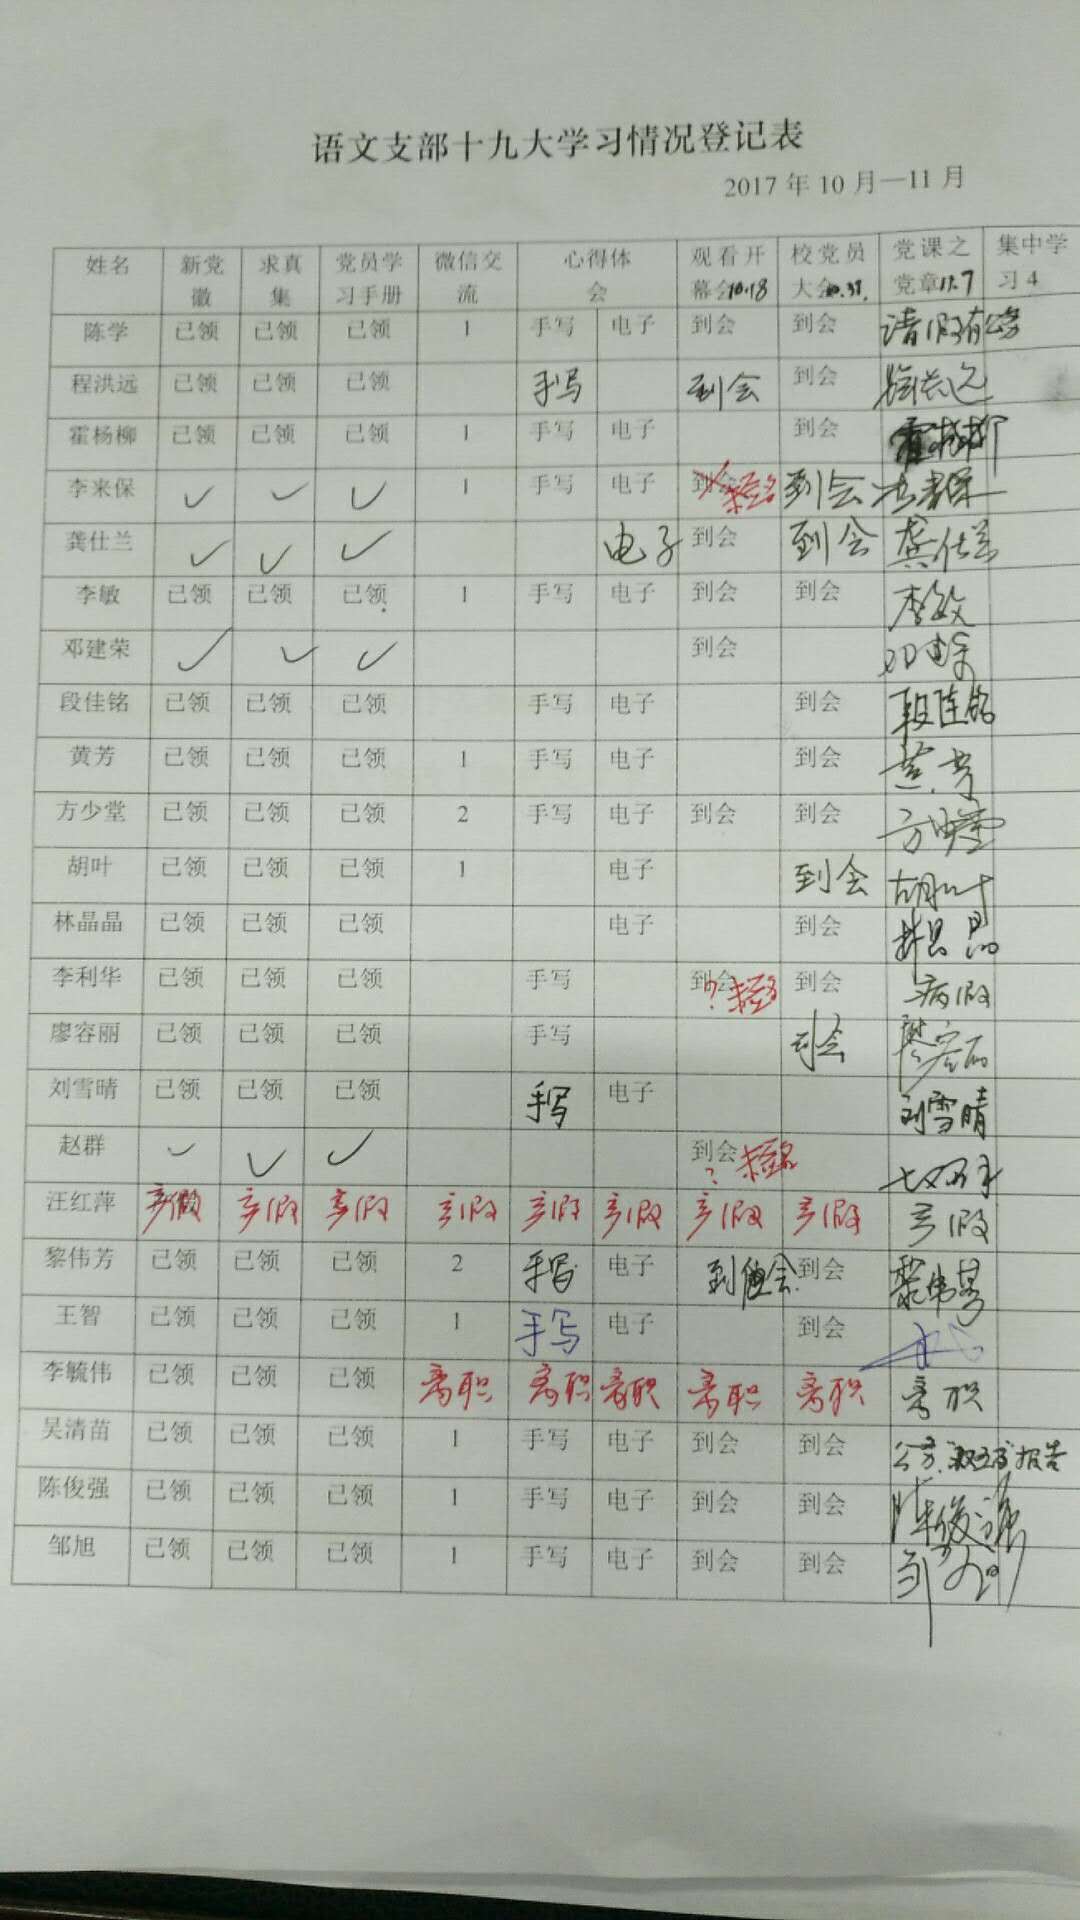 语文支部十九大学习情况登记表
2017年10月—11月
姓名 新党徽 求真集 党员学习手册 微信交流 心得体会 观看开幕会10.18 校党员大会 党课之党章11.7 集中学习4
陈学 已领 已领 已领 1 手写 电子 到会 到会 请假有公务
程洪远 已领 已领 已领 手写 到会 到会 程洪远
霍杨柳 已领 已领 已领 1 手写 电子 到会 霍杨柳
李来保 ✓ ✓ ✓ 1 手写 电子 到会 未签名 到会 李来保
龚仕兰 ✓ ✓ ✓ 电子 到会 到会 龚仕兰
李敏 已领 已领 已领 1 手写 电子 到会 到会 李敏
邓建荣 ✓ ✓ ✓ 到会 邓建荣
段佳铭 已领 已领 已领 手写 电子 到会 段佳铭
黄芳 已领 已领 已领 1 手写 电子 到会 黄芳
方少堂 已领 已领 已领 2 手写 电子 到会 到会 方少堂
胡叶 已领 已领 已领 1 电子 到会 胡叶
林晶晶 已领 已领 已领 电子 到会 林晶晶
李利华 已领 已领 已领 手写 到会 ?未签名 到会 病假
廖容丽 已领 已领 已领 手写 到会 廖容丽
刘雪晴 已领 已领 已领 手写 电子 刘雪晴
赵群 ✓ ✓ ✓ 到会 ?未签名
汪红萍 产假 产假 产假 产假 产假 产假 产假 产假 产假
黎伟芳 已领 已领 已领 2 手写 电子 到会 到会 黎伟芳
王智 已领 已领 已领 1 手写 电子 到会
李毓伟 已领 已领 已领 离职 离职 离职 离职 离职 离职
吴清苗 已领 已领 已领 1 手写 电子 到会 到会 公务 报告
陈俊强 已领 已领 已领 1 手写 电子 到会 到会 陈俊强
邹旭 已领 已领 已领 1 手写 电子 到会 到会 邹旭